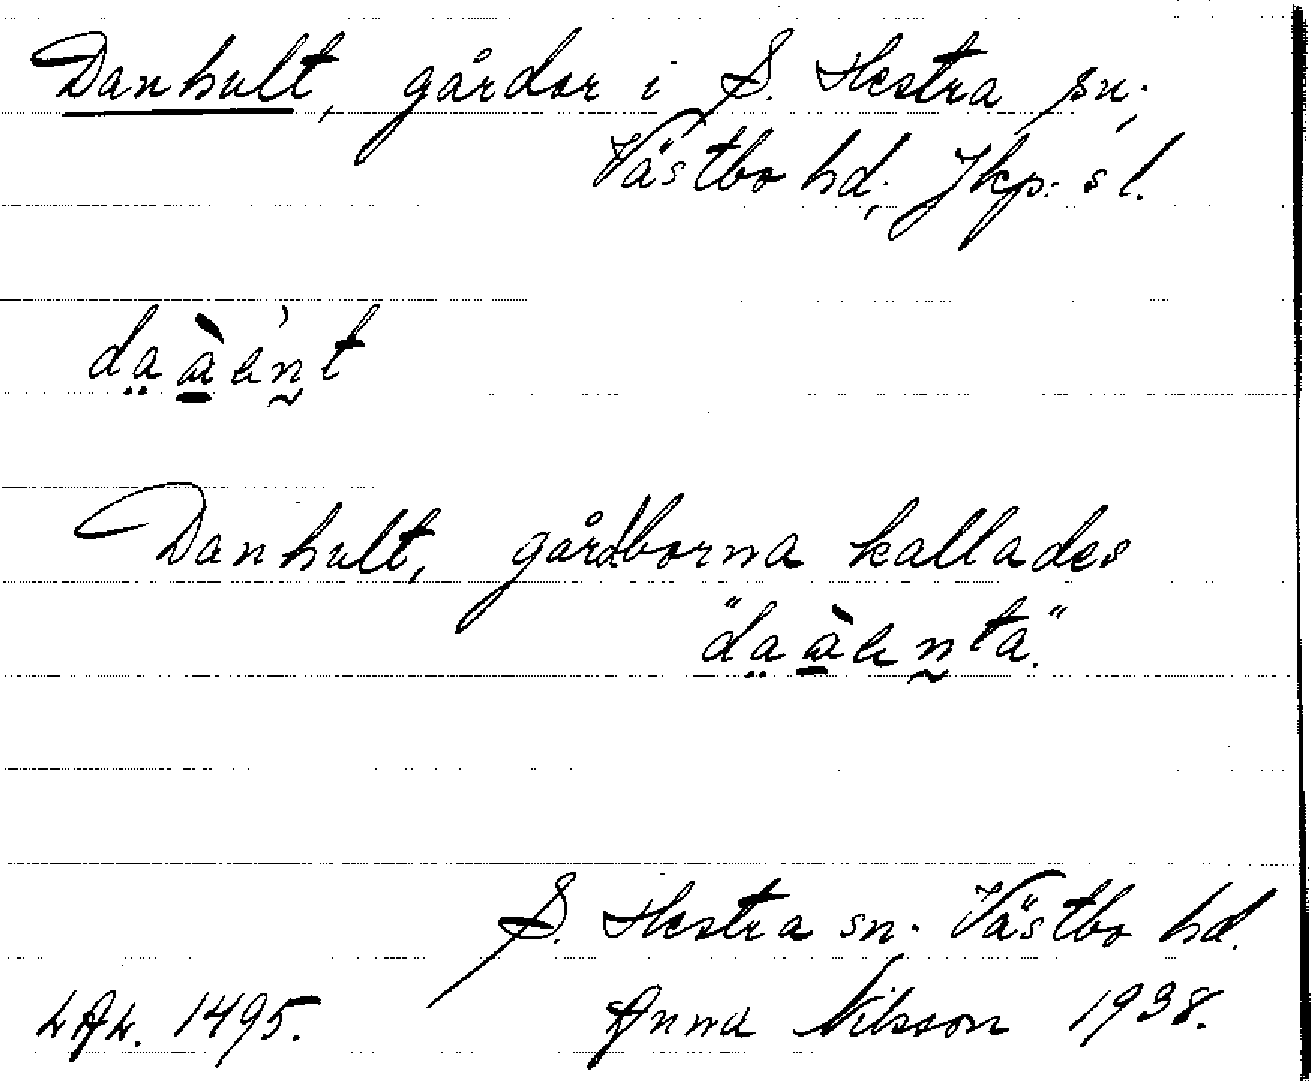 Danhult, gårdar i S. Hestra sn;
Västbo hd; Jkp: s l.
Danhult, gårdborna kallades
S. Hestra sn. Västbo hd.
LAL. 1495. Anna Nilsson 1938.